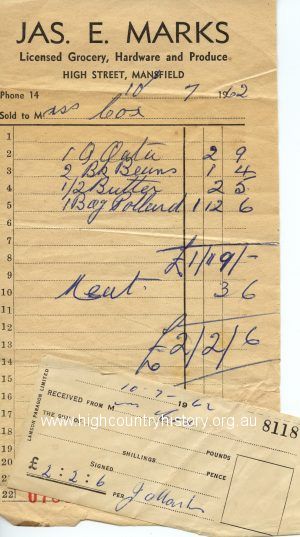 JAS. E. MARKS
Licensed Grocery, Hardware and Produce
HIGH STREET, MANSFIELD
Phone 14 10 7 1962
Sold to Mass Cox
1
2 1 Q Oats 2 9
3 2 Bk Beans 1 4
4 1/2 Butter 2 5
5 1 Bag Pollard 1 12 6
6
7
8 £1/19/-
9
10 Meat. 3 6
11
12
13 £2/2/6
14
LAMSON PARAGON LIMITED
10-7-1962
RECEIVED FROM M
www.highcountryhistory.org.au 8118
THE SUM
POUNDS
SHILLINGS PENCE
£ 2:2:6 SIGNED
PER J Marks
22